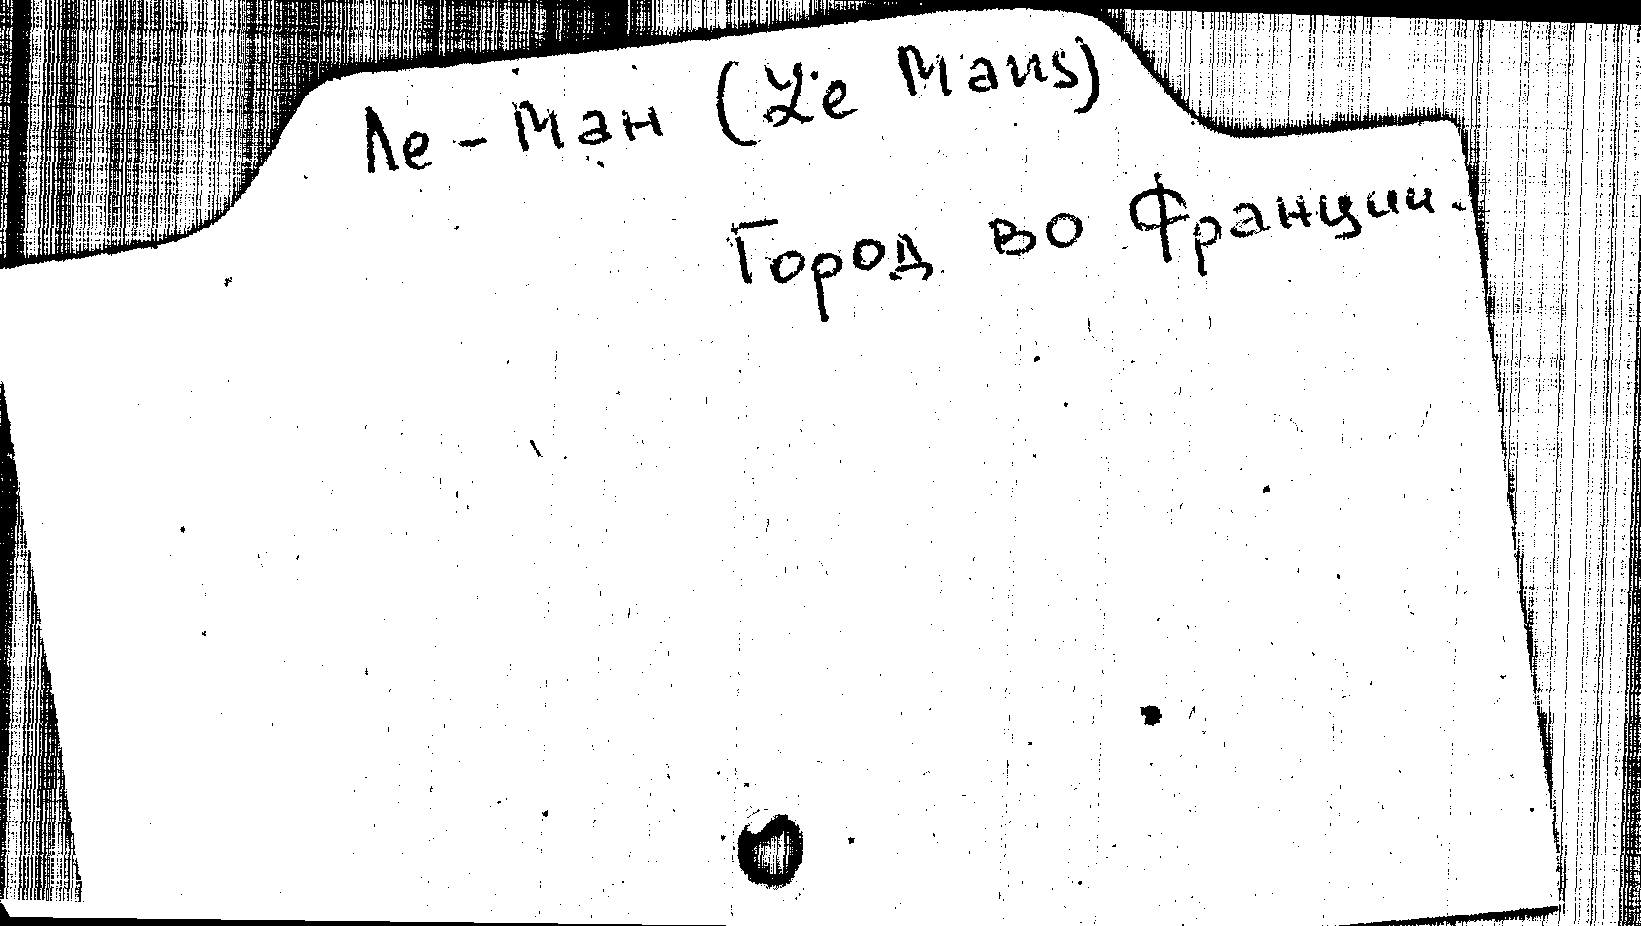 Ле-Ман (Le Mans)
Город во Франции.